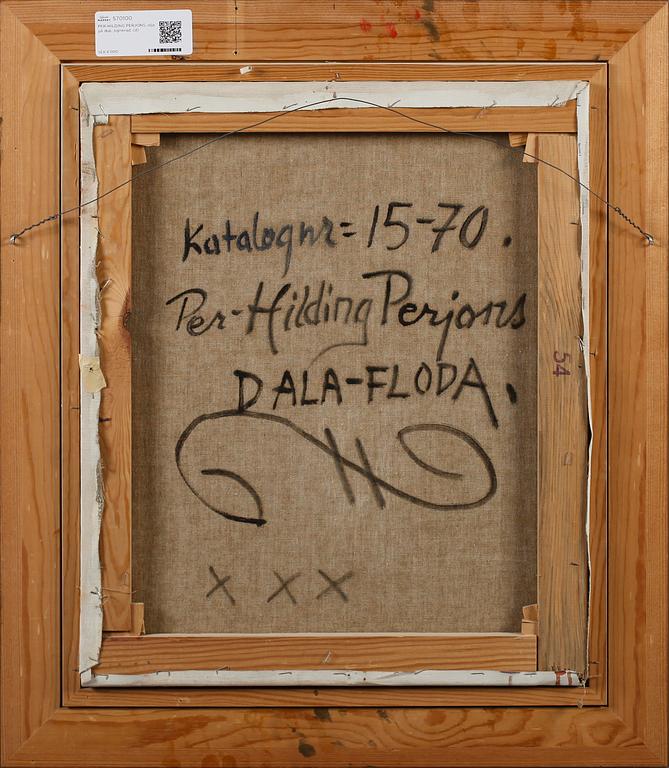 570100
PER-HILDING PERJONS, olja
på duk, signerad. (d)
Katalognr= 15-70.
Per-Hilding Perjons
DALA-FLODA.
X X X
54